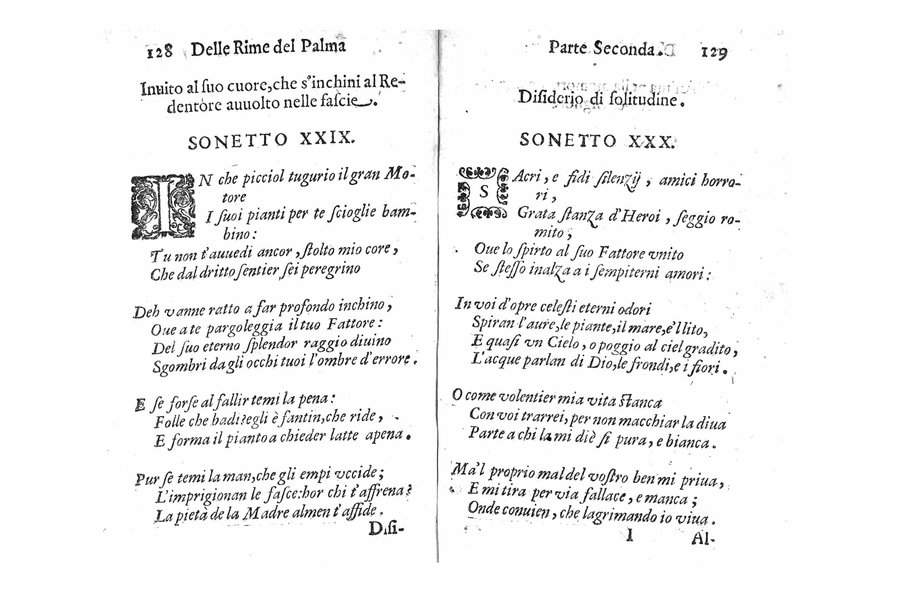 128 Delle Rime del Palma
Inuito al ſuo cuore, che s'inchini al Re-
dentore auuolto nelle faſcie.
SONETTO XXIX.
IN che picciol tugurio il gran Mo-
tore
I ſuoi pianti per te ſcioglie bam-
bino:
Tu non t'auuedi ancor, ſtolto mio core,
Che dal dritto ſentier ſei peregrino
Deh vanne ratto a far profondo inchino,
Oue a te pargoleggia il tuo Fattore:
Del ſuo eterno ſplendor raggio diuino
Sgombri dagli occhi tuoi l'ombre d'errore.
E ſe forſe al fallir temi la pena:
Folle che badi? egli è fantin, che ride,
E forma il pianto a chieder latte apena.
Pur ſe temi la man, che gli empi vccide;
L'imprigionan le faſce: hor chi t'affrena?
La pietà de la Madre almen t'affide.
Diſi-
Parte Seconda. 129
Diſiderio di ſolitudine.
SONETTO XXX.
SAcri, e fidi ſilenzij, amici horro-
ri,
Grata ſtanza d'Heroi, ſeggio ro-
mito,
Oue lo ſpirto al ſuo Fattore vnito
Se ſteſſo inalza a i ſempiterni amori:
In voi d'opre celeſti eterni odori
Spiran l'aure, le piante, il mare, e'l lito,
E quaſi vn Cielo, o poggio al ciel gradito,
L'acque parlan di Dio, le frondi, e i fiori.
O come volentier mia vita ſtanca
Con voi trarrei, per non macchiar la diua
Parte a chi la mi diè ſi pura, e bianca.
Ma'l proprio mal del voſtro ben mi priua,
E mi tira per via fallace, e manca;
Onde conuien, che lagrimando io viua.
I Al-